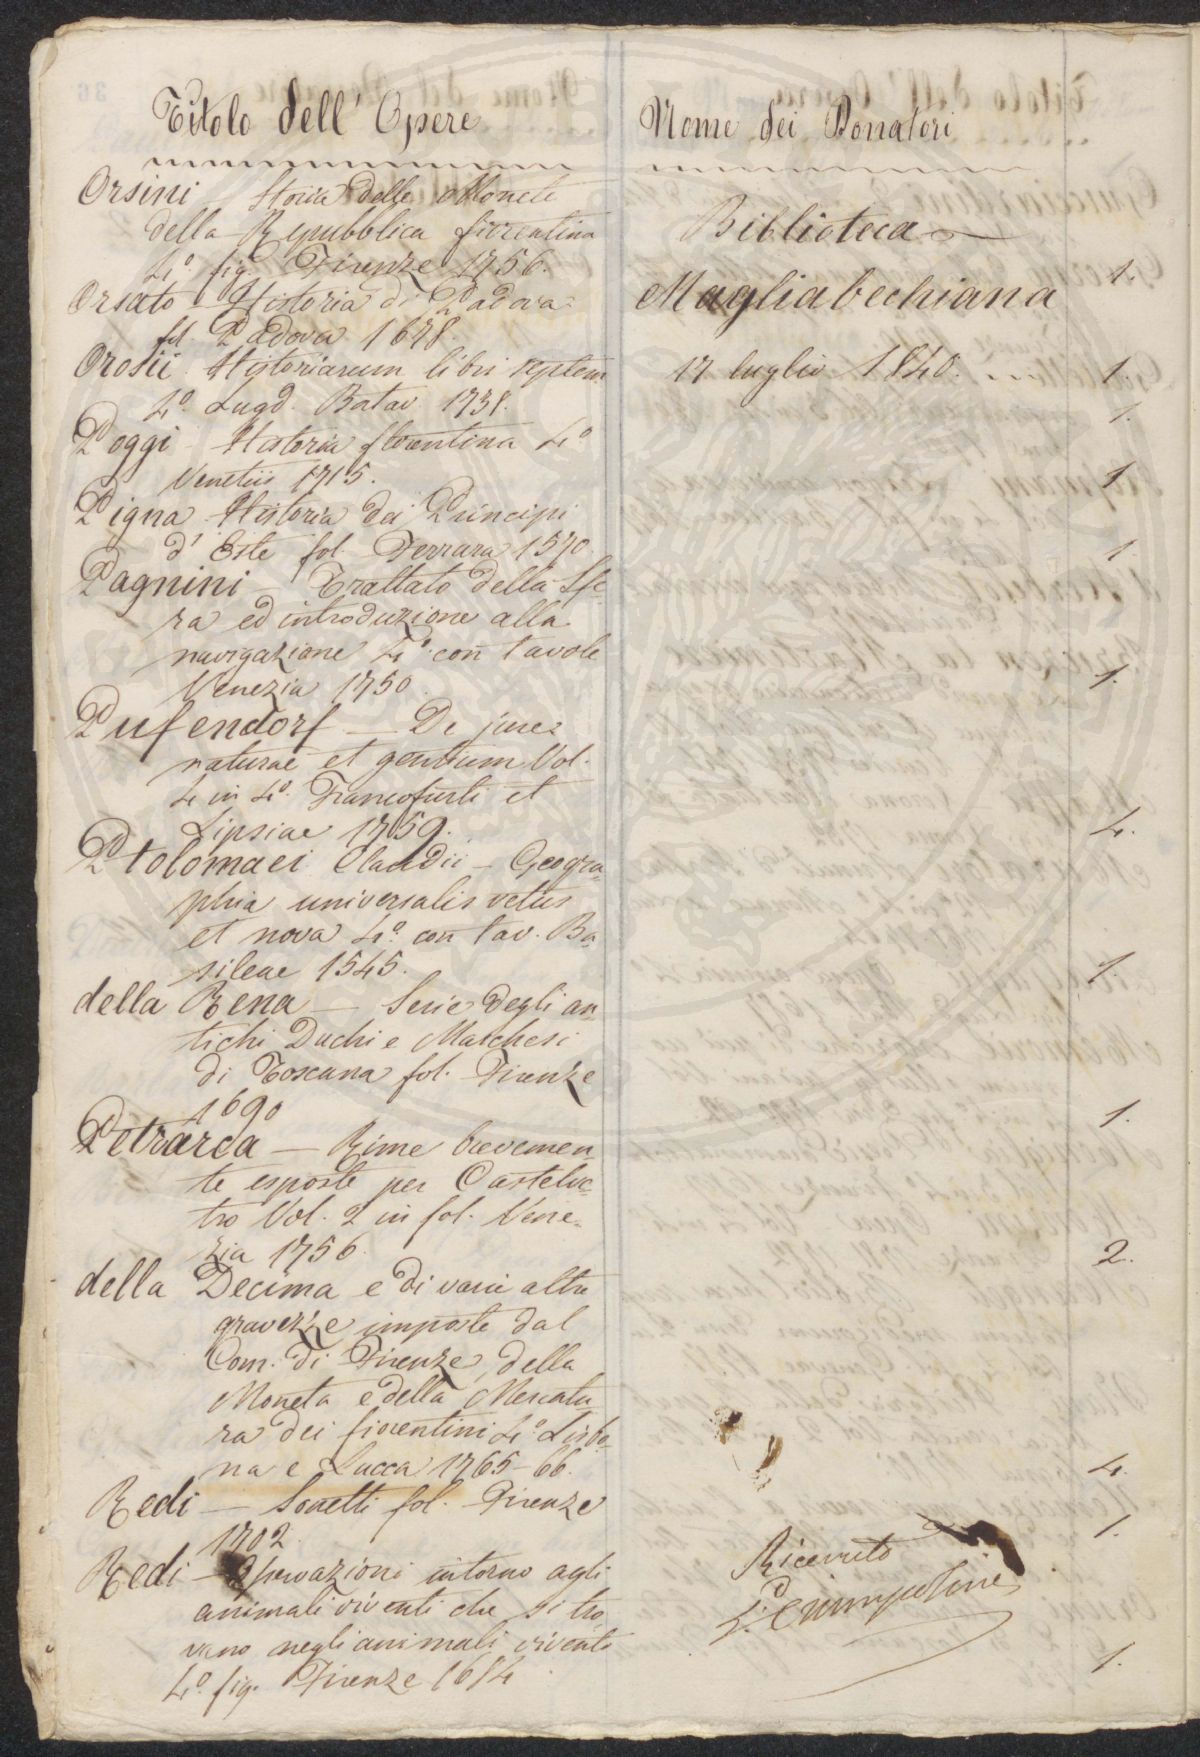 Titolo dell' Opere
Nome dei Donatori
Orsini Storia delle Monete
della Repubblica fiorentina
4.º fig. Firenze 1756.
1.
Orsato Historia di Padova
fol. Padova 1678.
Orosii Historiarum libri septem
1.
4.º Lugd. Batav. 1738.
1.
Poggi Historia florentina 4.º
Venetiis 1715.
1.
Pigna Historia dei Principi
d' Este fol. Ferrara 1570.
1.
Pagnini Trattato della Sfe-
ra ed introduzione alla
navigazione 4.º con tavole
Venezia 1750.
1.
Pufendorf — De jure
naturae et gentium Vol.
4 in 4.º Francofurti et
Lipsiae 1759.
4.
Ptolomaei Claudii — Geogra-
phia universalis vetus
et nova 4.º con tav. Ba-
sileae 1545.
1.
della Rena — Serie degli an-
tichi Duchi e Marchesi
di Toscana fol. Firenze
1690
1.
Petrarca — Rime brevemen-
te esposte per Castelve-
tro Vol. 2 in fol. Vene-
zia 1756.
2.
della Decima e di varie altre
gravezze imposte dal
Com. di Firenze, della
Moneta e della Mercatu-
ra dei fiorentini 4.º Lisbo-
na e Lucca 1765-66.
4.
Redi — Sonetti fol. Firenze
1702.
1.
Redi — Osservazioni intorno agli
animali viventi che si tro
vano negli animali viventi
4.º fig. Firenze 1684
1.
Biblioteca
Magliabechiana
17 luglio 1840.
Ricevuto